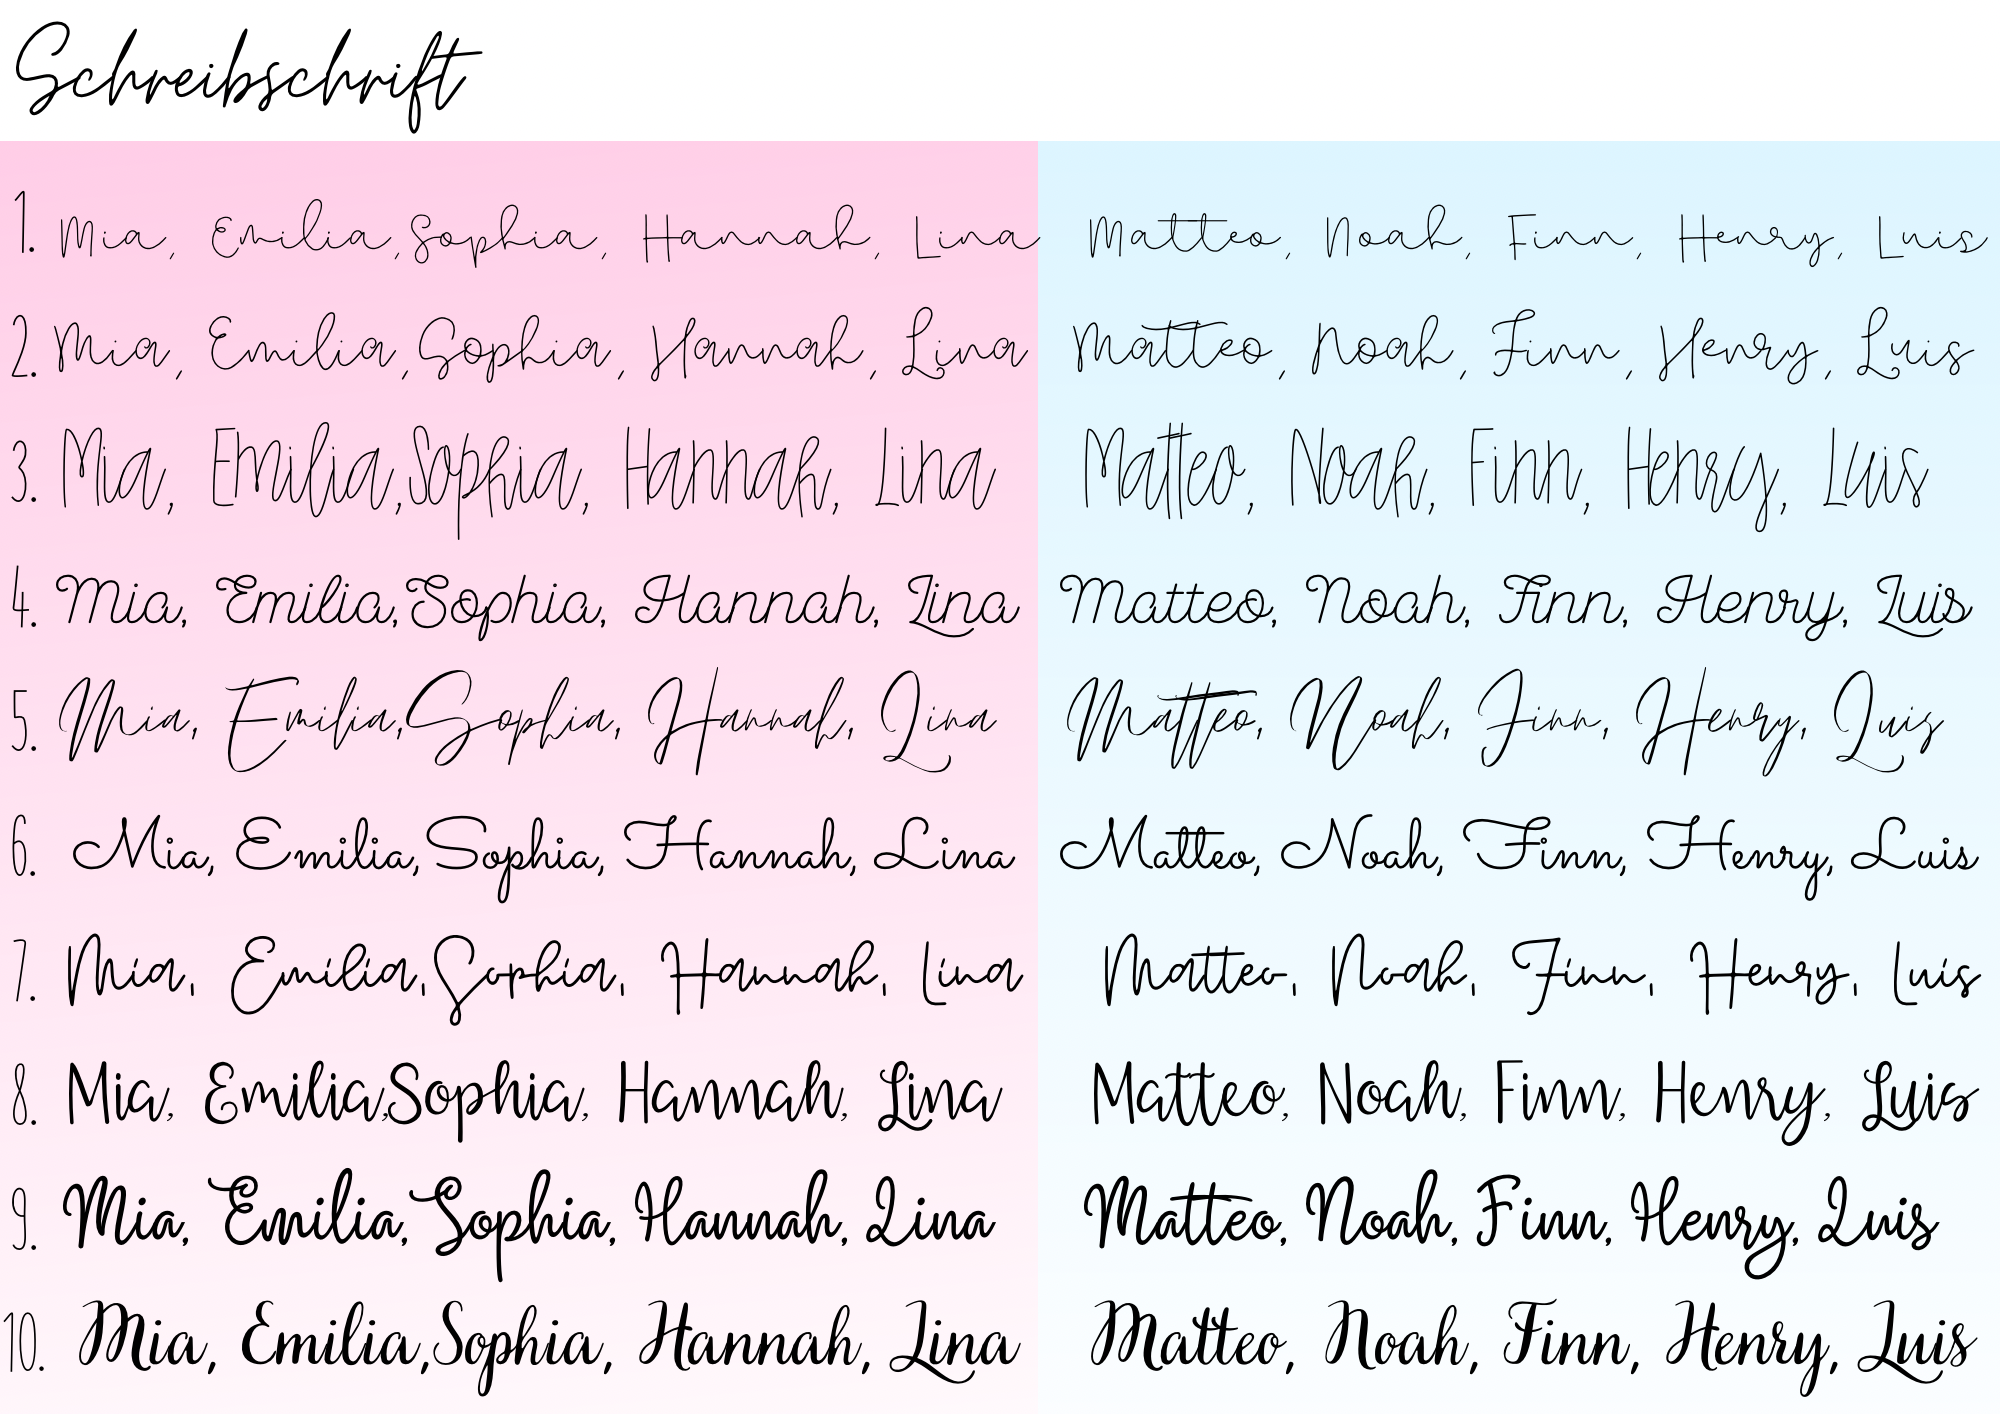 Schreibschrift
1. Mia, Emilia, Sophia, Hannah, Lina Matteo, Noah, Finn, Henry, Luis
2. Mia, Emilia, Sophia, Hannah, Lina Matteo, Noah, Finn, Henry, Luis
3. Mia, Emilia, Sophia, Hannah, Lina Matteo, Noah, Finn, Henry, Luis
4. Mia, Emilia, Sophia, Hannah, Lina Matteo, Noah, Finn, Henry, Luis
5. Mia, Emilia, Sophia, Hannah, Lina Matteo, Noah, Finn, Henry, Luis
6. Mia, Emilia, Sophia, Hannah, Lina Matteo, Noah, Finn, Henry, Luis
7. Mia, Emilia, Sophia, Hannah, Lina Matteo, Noah, Finn, Henry, Luis
8. Mia, Emilia, Sophia, Hannah, Lina Matteo, Noah, Finn, Henry, Luis
9. Mia, Emilia, Sophia, Hannah, Lina Matteo, Noah, Finn, Henry, Luis
10. Mia, Emilia, Sophia, Hannah, Lina Matteo, Noah, Finn, Henry, Luis